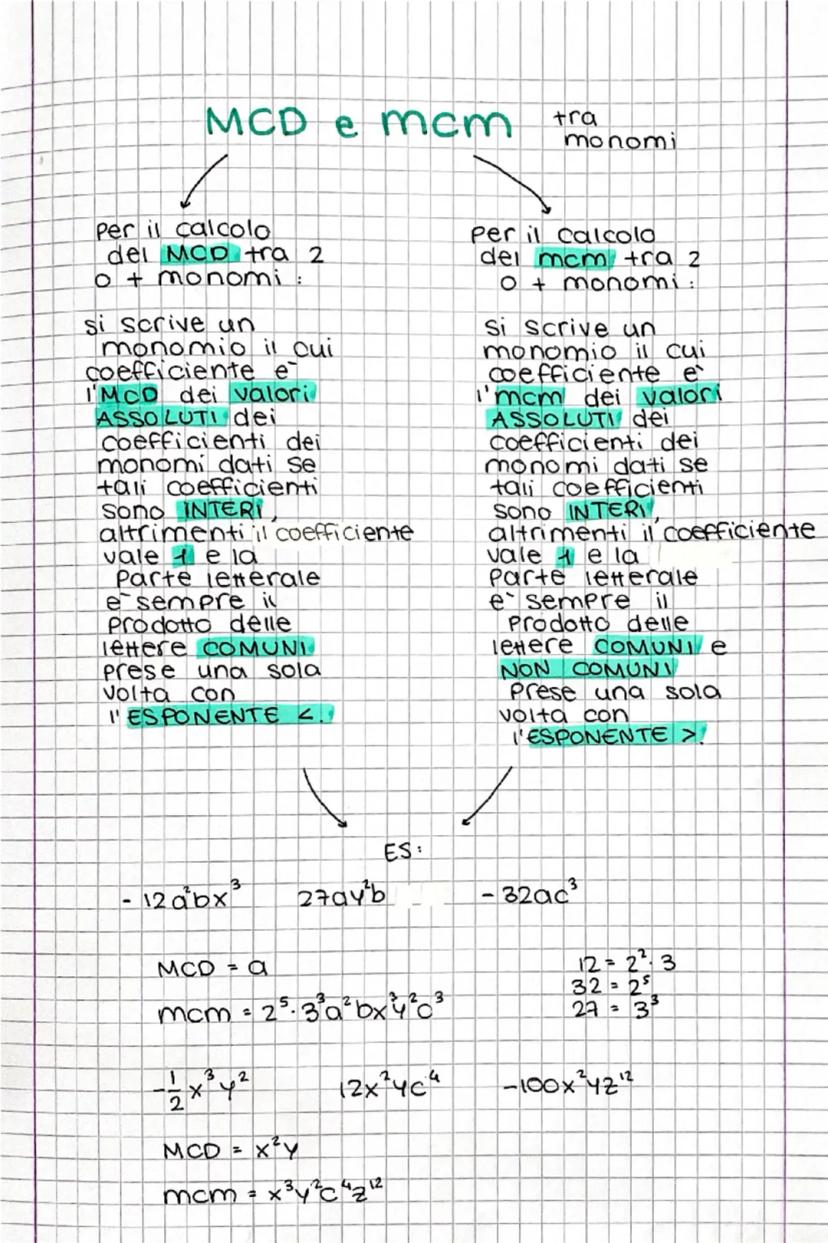 MCD e mcm tra
monomi
Per il calcolo
del MCD tra 2
o + monomi:
si scrive un
monomio il cui
coefficiente è
l'MCD dei valori
ASSOLUTI dei
coefficienti dei
monomi dati se
tali coefficienti
sono INTERI,
altrimenti il coefficiente
vale 1 e la
parte letterale
è sempre il
prodotto delle
lettere COMUNI
prese una sola
volta con
l'ESPONENTE <.
Per il calcolo
del mcm tra 2
o + monomi:
si scrive un
monomio il cui
coefficiente è
l'mcm dei valori
ASSOLUTI dei
coefficienti dei
monomi dati se
tali coefficienti
sono INTERI,
altrimenti il coefficiente
vale 1 e la
parte letterale
è sempre il
prodotto delle
lettere COMUNI e
NON COMUNI
prese una sola
volta con
l'ESPONENTE >.
ES:
-12a²bx³ 27ay²b -32ac³
MCD = a
mcm = 2⁵·3³a²bx³y²c³
12 = 2²·3
32 = 2⁵
27 = 3³
-1/2 x³y² 12x²yc⁴ -100x²yz¹²
MCD = x²y
mcm = x³y²c⁴z¹²